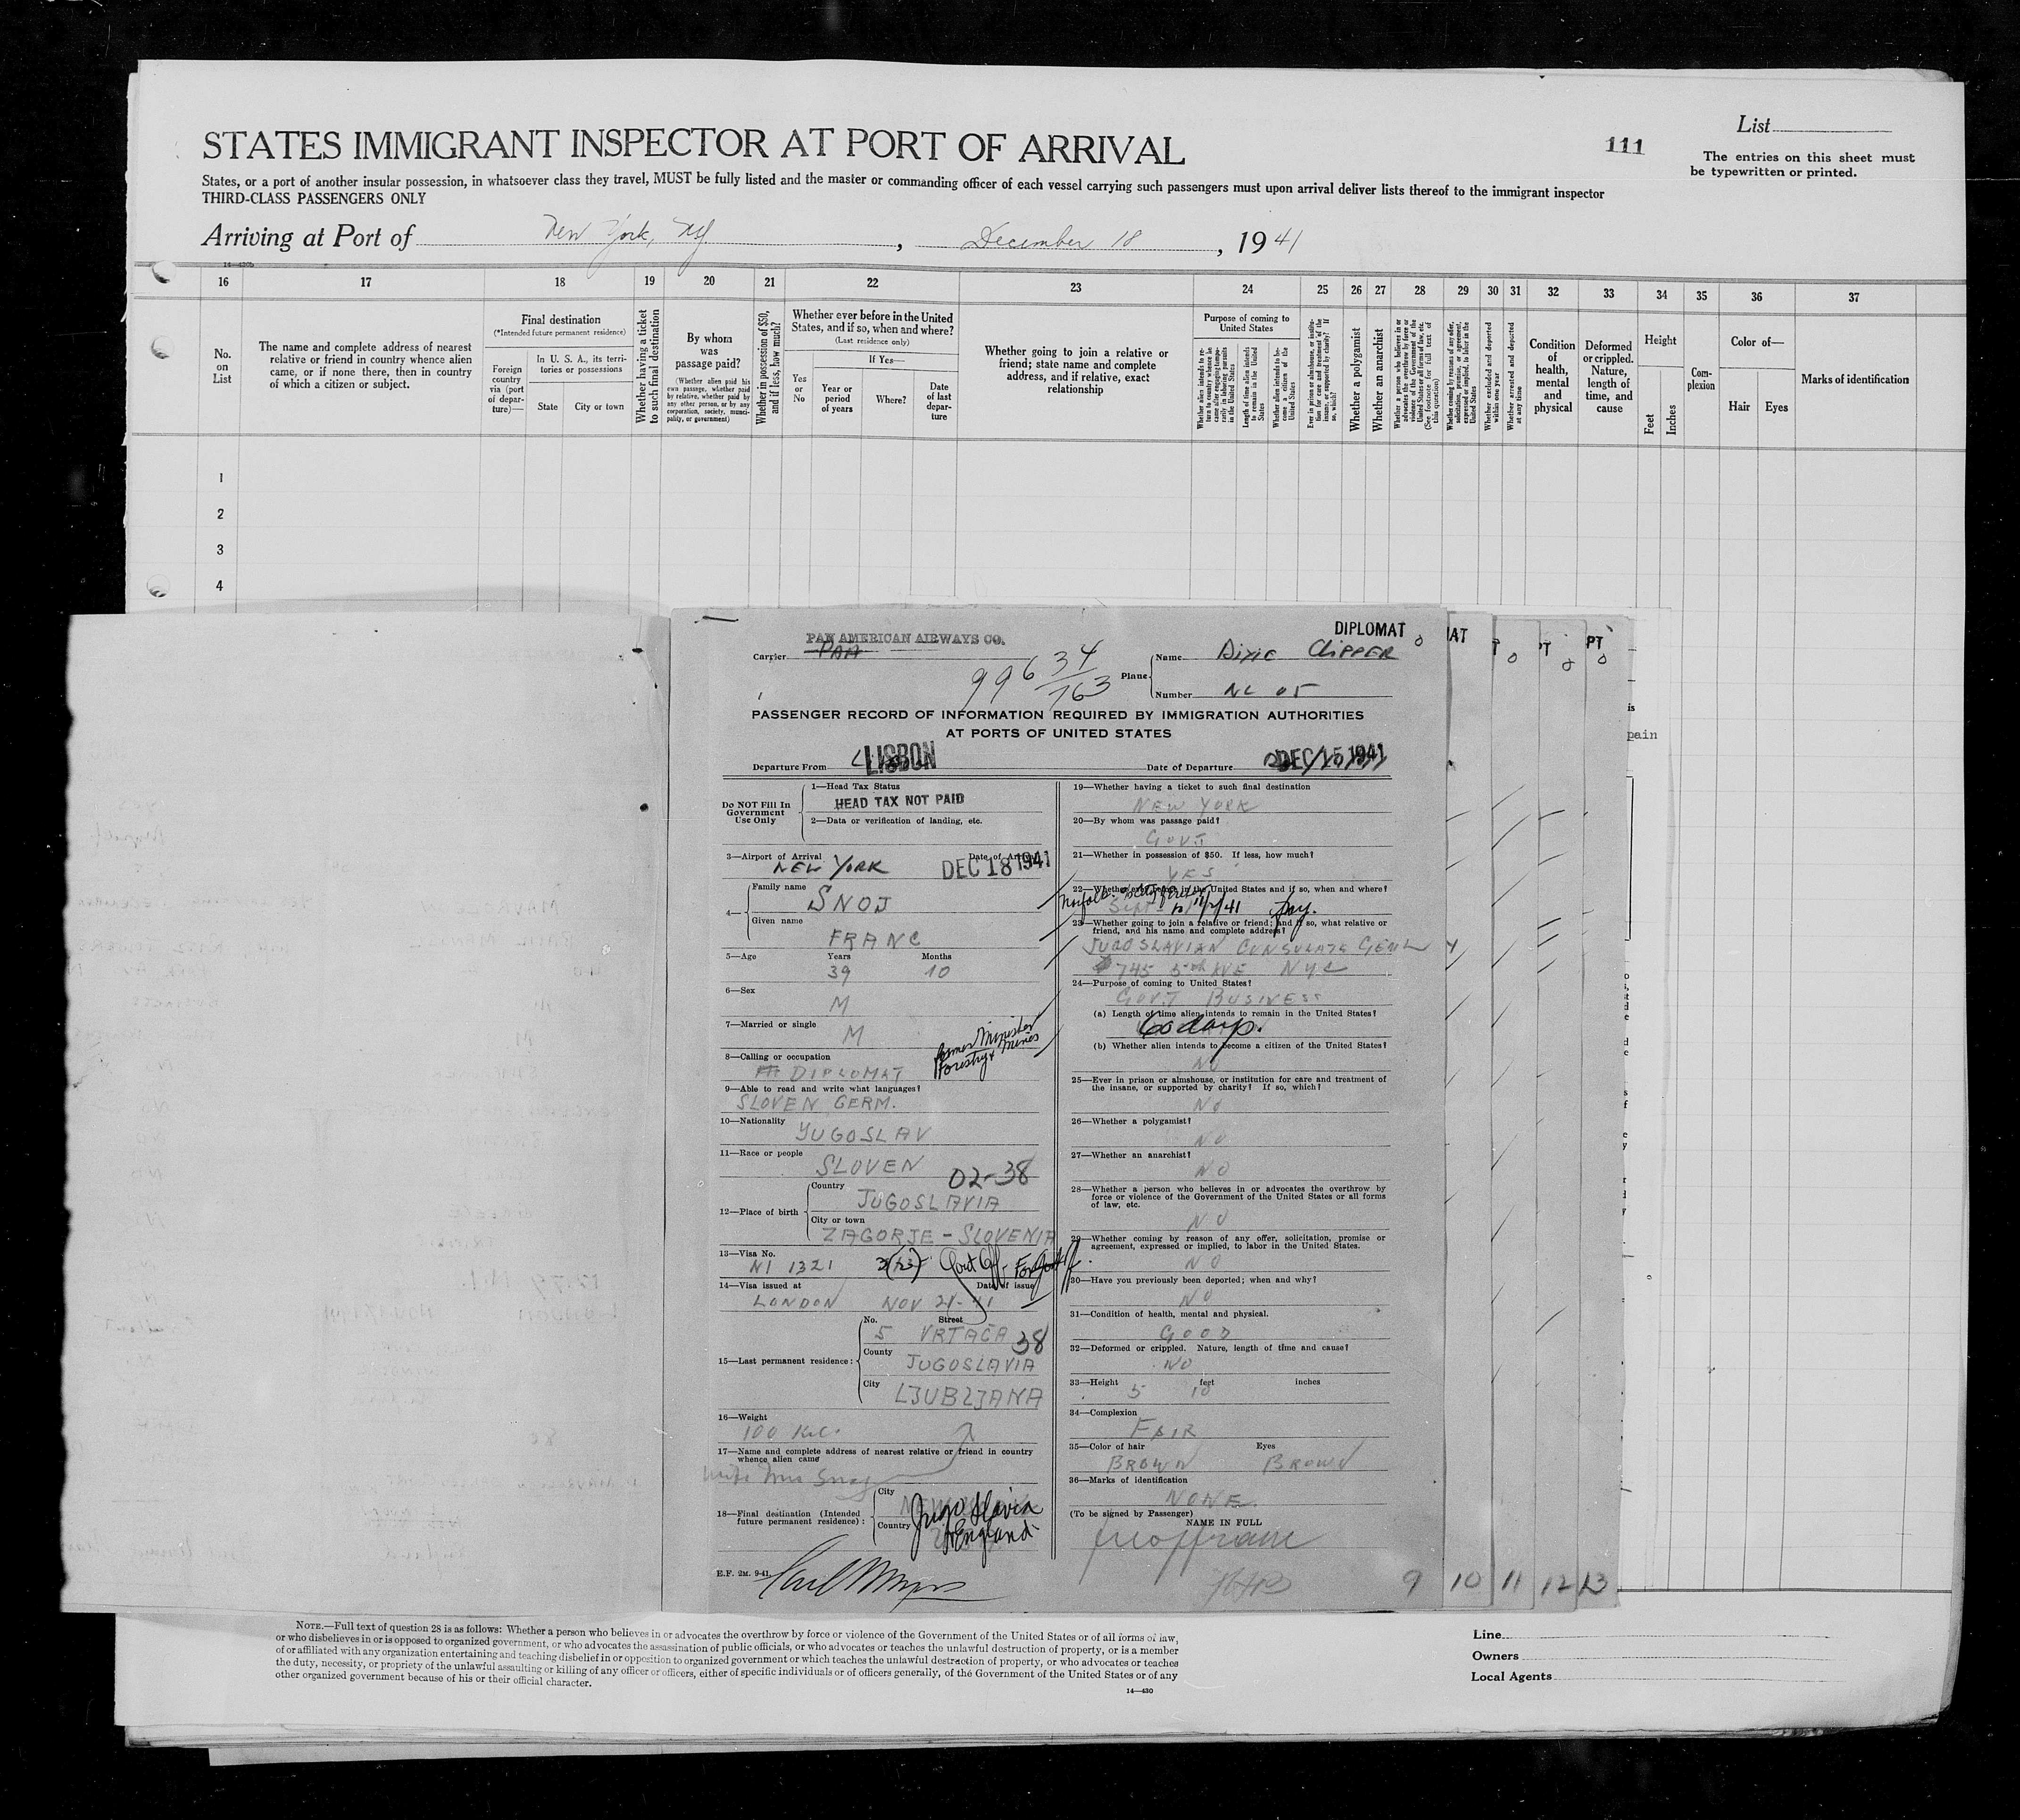 STATES IMMIGRANT INSPECTOR AT PORT OF ARRIVAL
111
List
The entries on this sheet must
be typewritten or printed.
States, or a port of another insular possession, in whatsoever class they travel, MUST be fully listed and the master or commanding officer of each vessel carrying such passengers must upon arrival deliver lists thereof to the immigrant inspector
THIRD-CLASS PASSENGERS ONLY
Arriving at Port of New York, NY, December 18, 1941
14—430b
16 17 18 19 20 21 22 23 24 25 26 27 28 29 30 31 32 33 34 35 36 37
No.
on
List
The name and complete address of nearest
relative or friend in country whence alien
came, or if none there, then in country
of which a citizen or subject.
Final destination
(*Intended future permanent residence)
Foreign
country
via (port
of depar-
ture)—
In U. S. A., its terri-
tories or possessions
State City or town
Whether having a ticket
to such final destination
By whom
was
passage paid?
(Whether alien paid his
own passage, whether paid
by relative, whether paid by
any other person, or by any
corporation, society, munici-
pality, or government)
Whether in possession of $50,
and if less, how much?
Whether ever before in the United
States, and if so, when and where?
(Last residence only)
If Yes—
Yes
or
No
Year or
period
of years
Where?
Date
of last
depar-
ture
Whether going to join a relative or
friend; state name and complete
address, and if relative, exact
relationship
Purpose of coming to
United States
Length of time alien intends
to remain in the United
States
Whether alien intends to be-
come a citizen of the
United States
Whether a polygamist
Whether an anarchist
Whether arrested and deported
at any time
Condition
of
health,
mental
and
physical
Deformed
or crippled.
Nature,
length of
time, and
cause
Height
Feet Inches
Com-
plexion
Color of—
Hair Eyes
Marks of identification
1
2
3
4
PAN AMERICAN AIRWAYS CO.
DIPLOMAT
Carrier PAA
99634/763
Plane
Name Dixie Clipper
Number NC 05
PASSENGER RECORD OF INFORMATION REQUIRED BY IMMIGRATION AUTHORITIES
AT PORTS OF UNITED STATES
Departure From LISBON
Date of Departure DEC 15 1941
Do NOT Fill In
Government
Use Only
1—Head Tax Status
HEAD TAX NOT PAID
2—Data or verification of landing, etc.
3—Airport of Arrival
NEW YORK
DEC 18 1941
4—
Family name
SNOJ
Given name
FRANC
5—Age Years Months
39 10
6—Sex
M
7—Married or single
M
8—Calling or occupation
DIPLOMAT
Former Minister
Forestry & Mines
9—Able to read and write what languages?
SLOVEN GERM.
10—Nationality
YUGOSLAV
11—Race or people
SLOVEN
02-38
12—Place of birth
Country
JUGOSLAVIA
City or town
ZAGORJE - SLOVENIA
13—Visa No.
NI 1321
14—Visa issued at Date of issue
LONDON NOV 21-41
15—Last permanent residence:
No. Street
5 VRTAČA
38
County
JUGOSLAVIA
City
LJUBLJANA
16—Weight
100 KG.
17—Name and complete address of nearest relative or friend in country
whence alien came
wife Mrs Snoj
18—Final destination (Intended
future permanent residence):
City
Country
Jugo Slavia
England
E.F. 2M. 9-41.
19—Whether having a ticket to such final destination
NEW YORK
20—By whom was passage paid?
GOVT
21—Whether in possession of $50. If less, how much?
YES
22—Whether ever before in the United States and if so, when and where?
23—Whether going to join a relative or friend; and if so, what relative or
friend, and his name and complete address?
JUGOSLAVIAN CONSULATE GENL
745 5th AVE NYC
24—Purpose of coming to United States?
GOVT BUSINESS
(a) Length of time alien intends to remain in the United States?
60 days.
(b) Whether alien intends to become a citizen of the United States?
NO
25—Ever in prison or almshouse, or institution for care and treatment of
the insane, or supported by charity? If so, which?
NO
26—Whether a polygamist?
NO
27—Whether an anarchist?
NO
28—Whether a person who believes in or advocates the overthrow by
force or violence of the Government of the United States or all forms
of law, etc.
NO
29—Whether coming by reason of any offer, solicitation, promise or
agreement, expressed or implied, to labor in the United States.
NO
30—Have you previously been deported; when and why?
NO
31—Condition of health, mental and physical.
GOOD
32—Deformed or crippled. Nature, length of time and cause?
NO
33—Height feet inches
5 10
34—Complexion
FAIR
35—Color of hair Eyes
BROWN BROWN
36—Marks of identification
NONE
(To be signed by Passenger)
NAME IN FULL
9 10 11 12 13
NOTE.—Full text of question 28 is as follows: Whether a person who believes in or advocates the overthrow by force or violence of the Government of the United States or of all forms of law,
or who disbelieves in or is opposed to organized government, or who advocates the assassination of public officials, or who advocates or teaches the unlawful destruction of property, or is a member
of or affiliated with any organization entertaining and teaching disbelief in or opposition to organized government or which teaches the unlawful destruction of property, or who advocates or teaches
the duty, necessity, or propriety of the unlawful assaulting or killing of any officer or officers, either of specific individuals or of officers generally, of the Government of the United States or of any
other organized government because of his or their official character.
14—430
Line
Owners
Local Agents